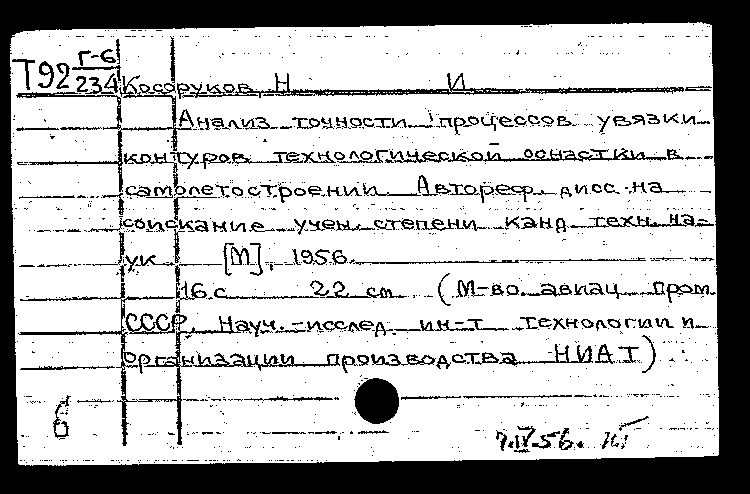 Т92 Г-6
234 Косоруков, Н И
Анализ точности процессов увязки
контуров технологической оснастки в
самолетостроении. Автореф. дисс. на
соискание учен. степени канд. техн. на-
ук [М], 1956.
16 с 22 см (М-во авиац пром
СССР. Науч.-исслед. ин-т технологии и
организации производства НИАТ)
6
7.IV.56.